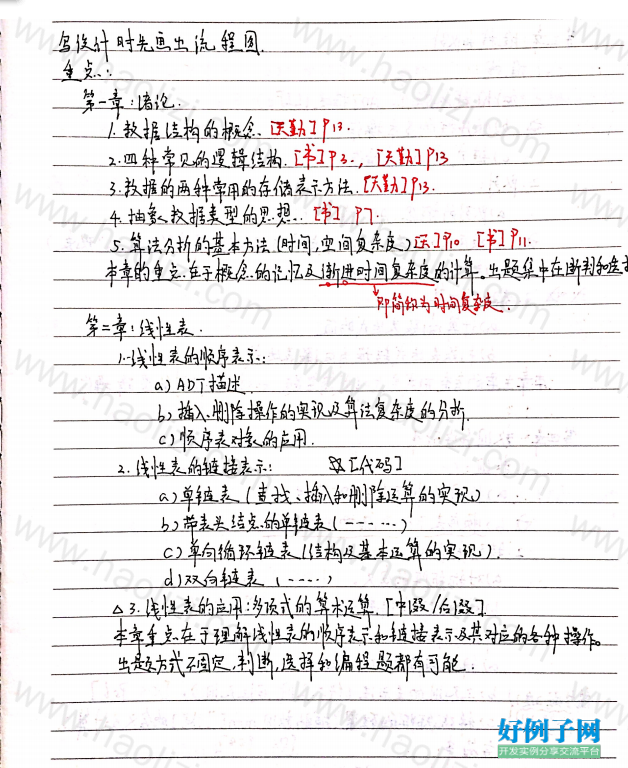 写设计时先画出流程图.
重点:
第一章:绪论.
1.数据结构的概念.[天勤]P13.
2.四种常见的逻辑结构.[书]P3.,[天勤]P13
3.数据的两种常用的存储表示方法.[天勤]P13.
4.抽象数据类型的思想.[书] P7.
5.算法分析的基本方法(时间,空间复杂度)[天]P10 [书]P11.
本章的重点在于概念的记忆及渐进时间复杂度的计算。出题集中在断判和选择
即简称为时间复杂度.
第二章:线性表.
1.线性表的顺序表示:
a)ADT描述
b)插入.删除操作的实现及算法复杂度的分析.
c)顺序表对象的应用.
2.线性表的链接表示: [代码]
a)单链表(查找、插入和删除运算的实现)
b)带表头结点的单链表(------)
c)单向循环链表(结构及基本运算的实现).
d)双向链表(----)
△3.线性表的应用:多项式的算术运算.[中缀/后缀].
本章重点在于理解线性表的顺序表示和链接表示及其对应的各种操作。
出题方式不固定,判断,选择和编程题都有可能.
www.haolizi.com
好例子网
开发实例分享交流平台